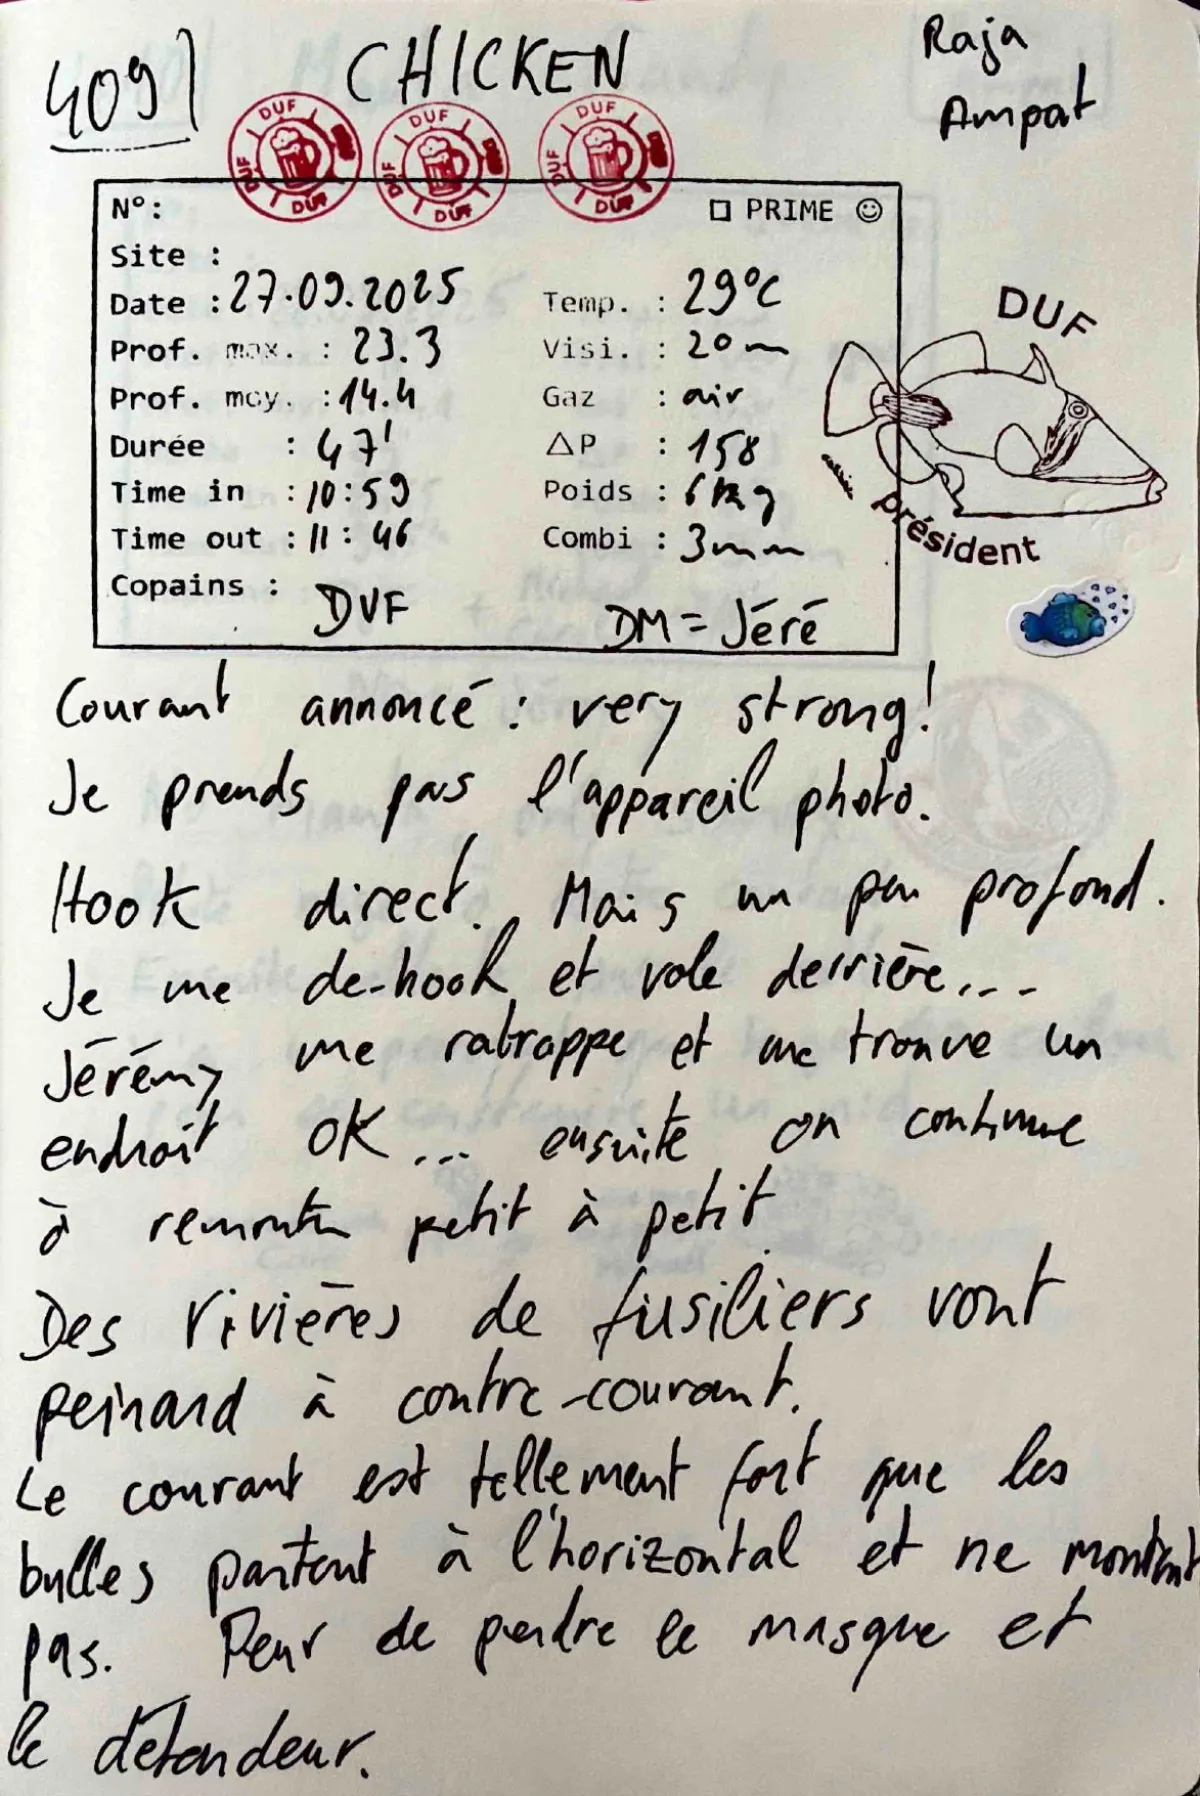 409
CHICKEN
Raja
Ampat
DUF DUF DUF
DUF DUF DUF
DUF DUF DUF
N°:
□ PRIME ☺
Site :
Date : 27.09.2025
Temp. : 29°C
Prof. max. : 23.3
Visi. : 20 m
Prof. moy. : 14.4
Gaz : air
Durée : 47'
ΔP : 158
Time in : 10:59
Poids : 6 kg
Time out : 11:46
Combi : 3mm
Copains : DUF
DM = Jéré
DUF
président
Courant annoncé : very strong!
Je prends pas l'appareil photo.
Hook direct. Mais un peu profond.
Je me de-hook et vole derrière...
Jérémy me ratrappe et me trouve un
endroit OK ... ensuite on continue
à remonter petit à petit
Des rivières de fusiliers vont
peinard à contre-courant.
Le courant est tellement fort que les
bulles partent à l'horizontal et ne montent
pas. Peur de perdre le masque et
le détendeur.